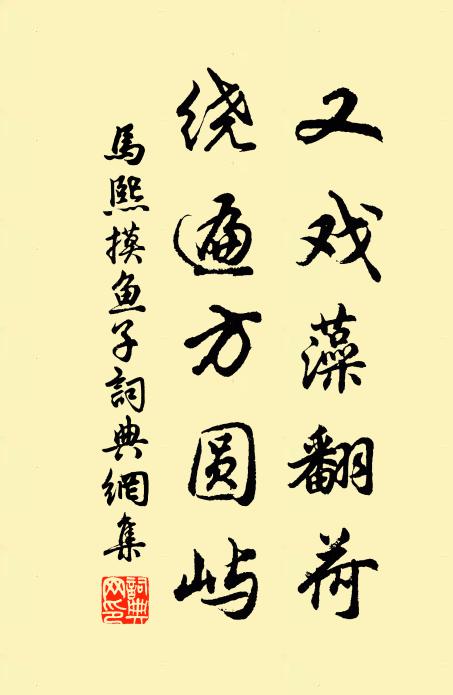 又戏藻翻荷
绕遍方圆屿
馬熙摸鱼子詞典網集
詞典网印